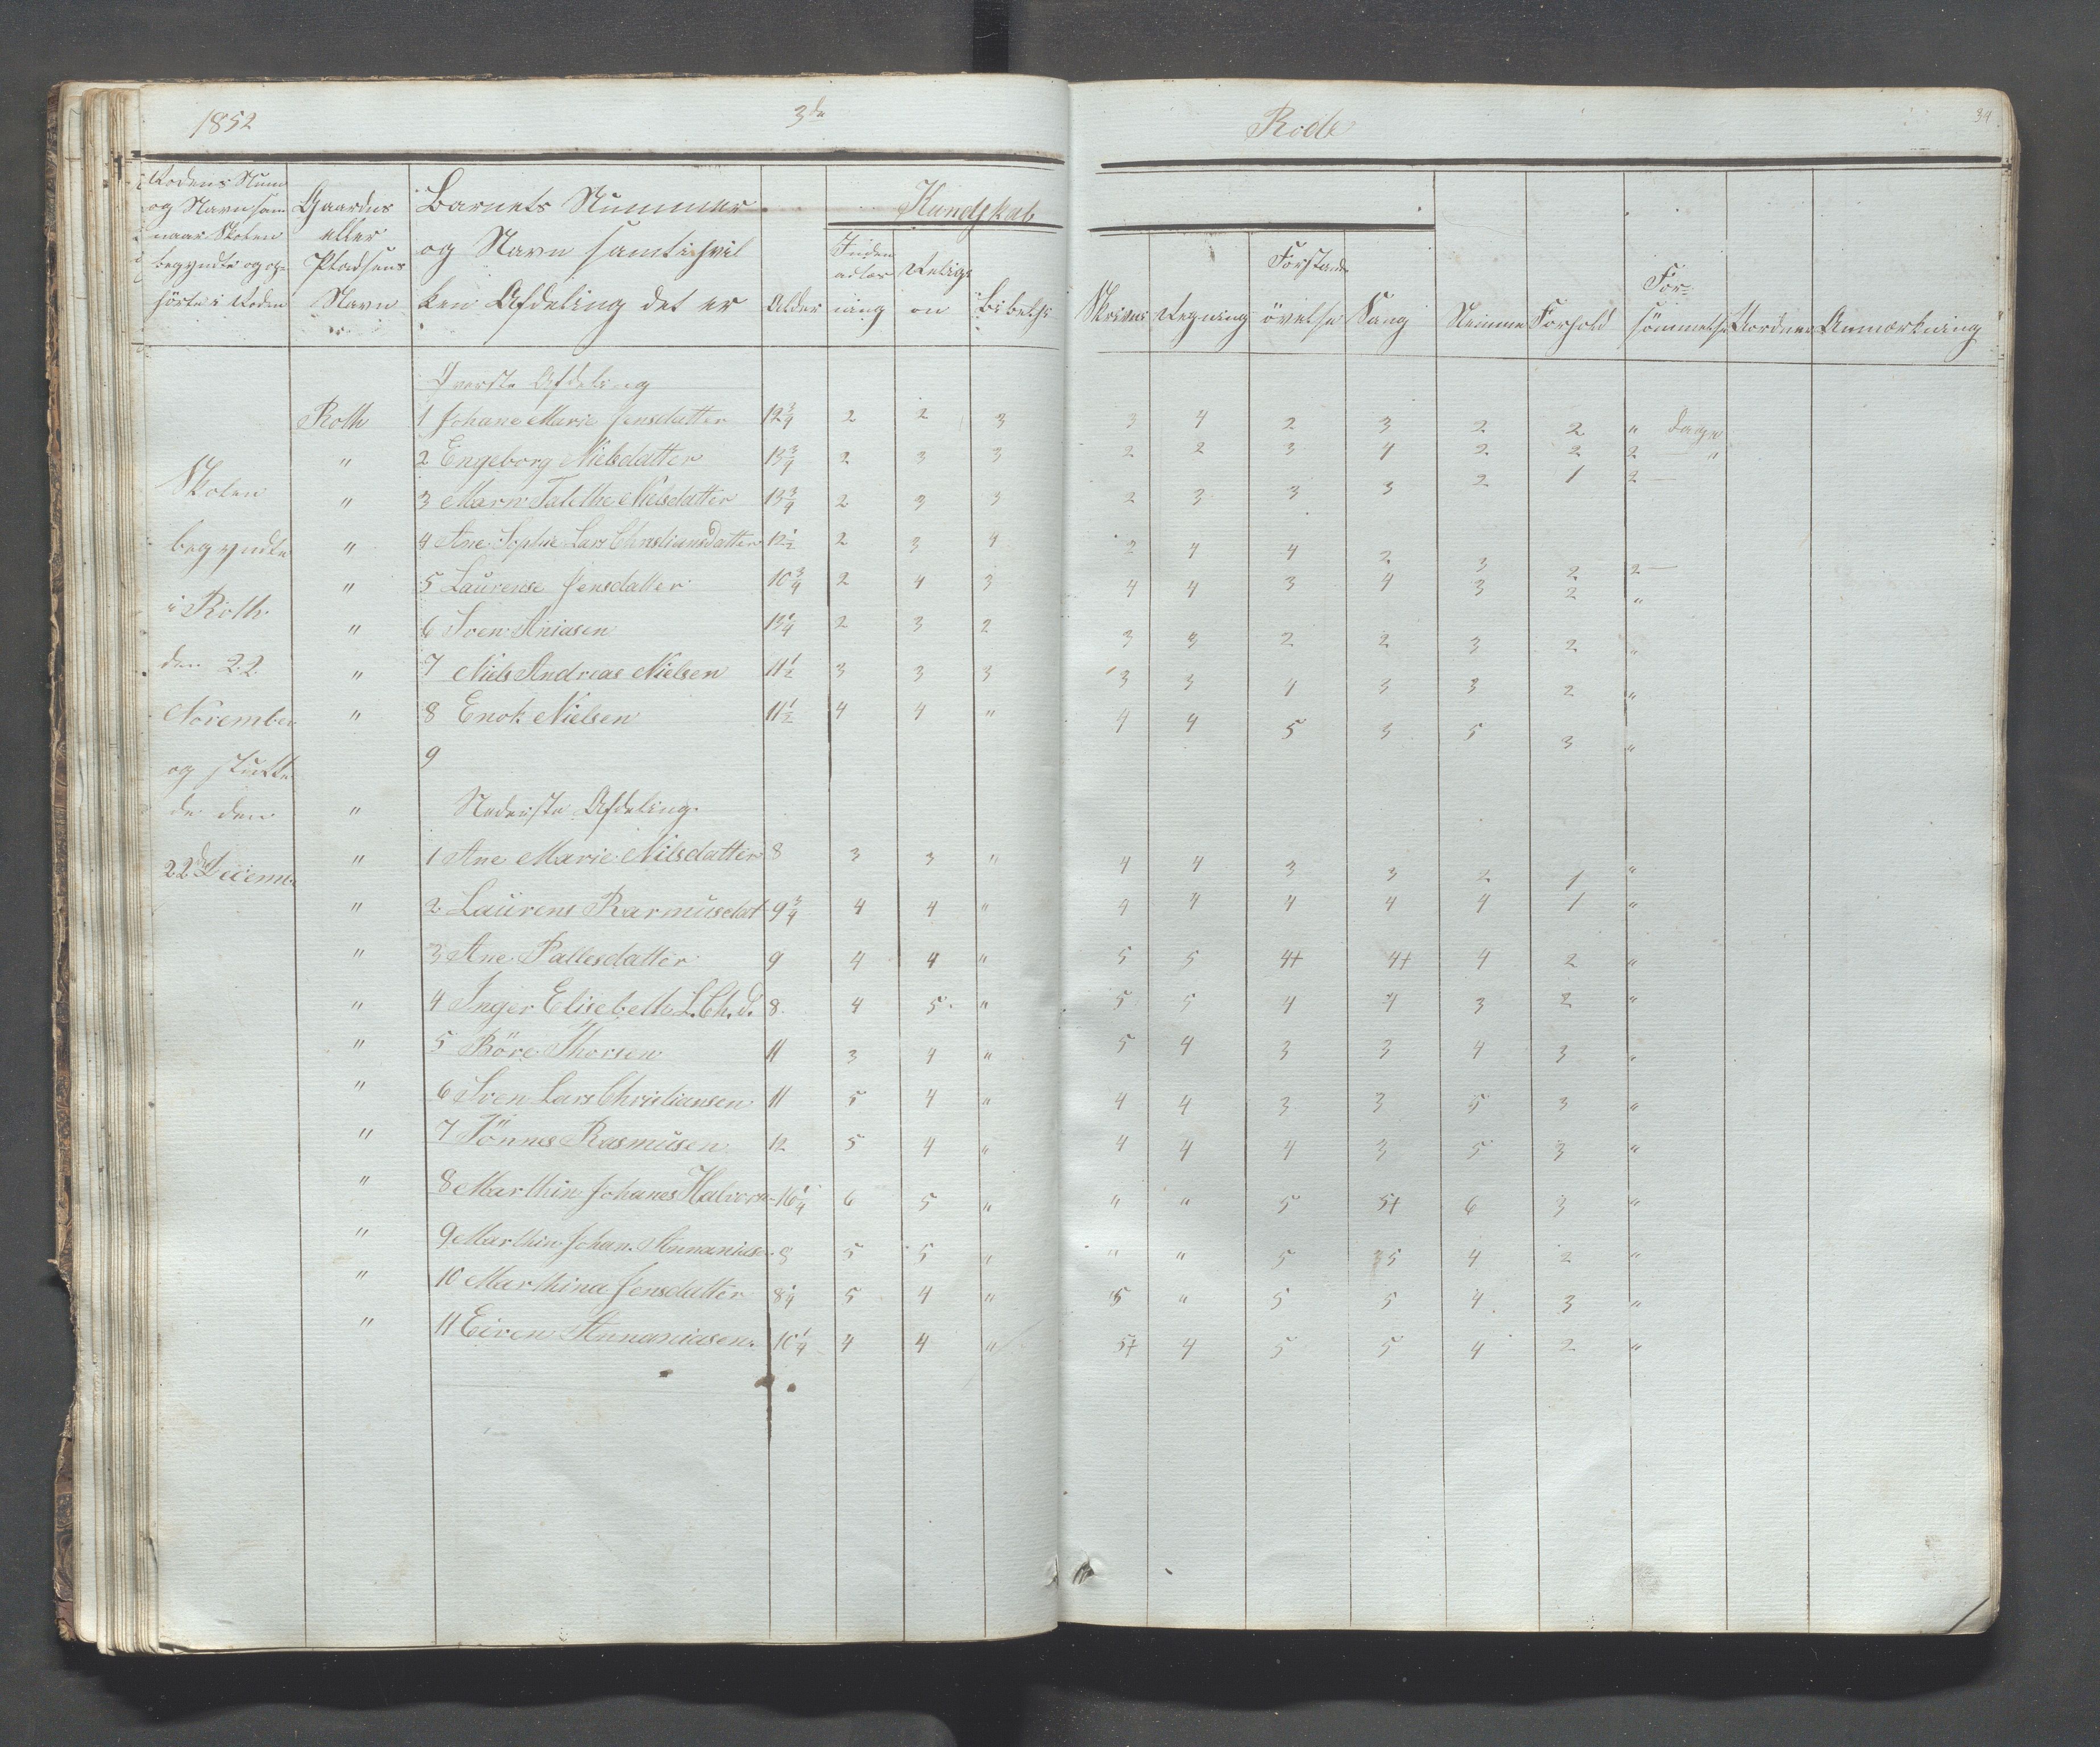 1852 3de Rode 34
Rodens Num og Navn sam naar Skolen begyndte og op- hörte i Roden | Gaardens eller Pladsens Navn | Barnets Nummer og Navn samt i hvil ken Afdeling det er | Alder | Kundskab
Inden adlæs ning | Religi on | Bibelhi | Skriven | Regning | Forstands övelse | Sang | Nemme | Forhold | For- sömmelse | Uorden | Anmærkning
Överste Afdeling
Roth 1 Johane Marie Jensdatter 12 3/4 2 2 3 3 4 2 3 2 2 " Dage
" 2 Engeborg Nielsdatter 13 3/4 2 3 3 2 2 3 4 2 2 2 — "
Skolen " 3 Maren Talethe Nielsdatter 13 3/4 2 3 3 2 3 3 3 2 1 2 —
begyndte " 4 Ane Sophie Lars Christiansdatter 12 1/2 2 3 4 2 4 4 2 3 2 2 —
i Roth " 5 Laurense Jensdatter 10 3/4 2 4 3 4 4 3 4 3 2 "
" 6 Sven Aniasen 13 1/4 2 3 2 3 3 2 2 3 2 "
den 22 " 7 Niels Andreas Nielsen 11 1/2 3 3 3 3 3 4 3 3 2 "
November " 8 Enok Nielsen 11 1/2 4 4 " 4 4 5 3 5 3 "
og slutte 9
de den " Nederste Afdeling.
22de Decemb. " 1 Ane Marie Nilsdatter 8 3 3 " 4 4 3 3 2 1 "
" 2 Laurens Rasmusdat 9 3/4 4 4 " 4 4 4 4 4 1 "
" 3 Ane Pallesdatter 9 4 4 " 5 5 4+ 4+ 4 2 "
" 4 Inger Elisebeth L. Ch. d. 8 4 5 " 5 5 4 4 3 2 "
" 5 Böre Thorsen 11 3 4 " 5 4 3 3 4 3 "
" 6 Sven Lars Christiansen 11 5 4 " 4 4 3 3 5 3 "
" 7 Tönnes Rasmusen 12 5 4 " 4 4 4 3 5 3 "
" 8 Marthin Johanes Halvors- 16 1/4 6 5 " " " 5 5+ 6 3 "
" 9 Marthin Johan. Annanias. 9 5 5 " " " 5 5 4 2 "
" 10 Marthina Jensdatter 8 1/4 5 4 " 5 " 5 5 4 3 "
" 11 Eiven Annaniasen. 10 1/4 4 4 " 5+ 4 5 5 4 2 "